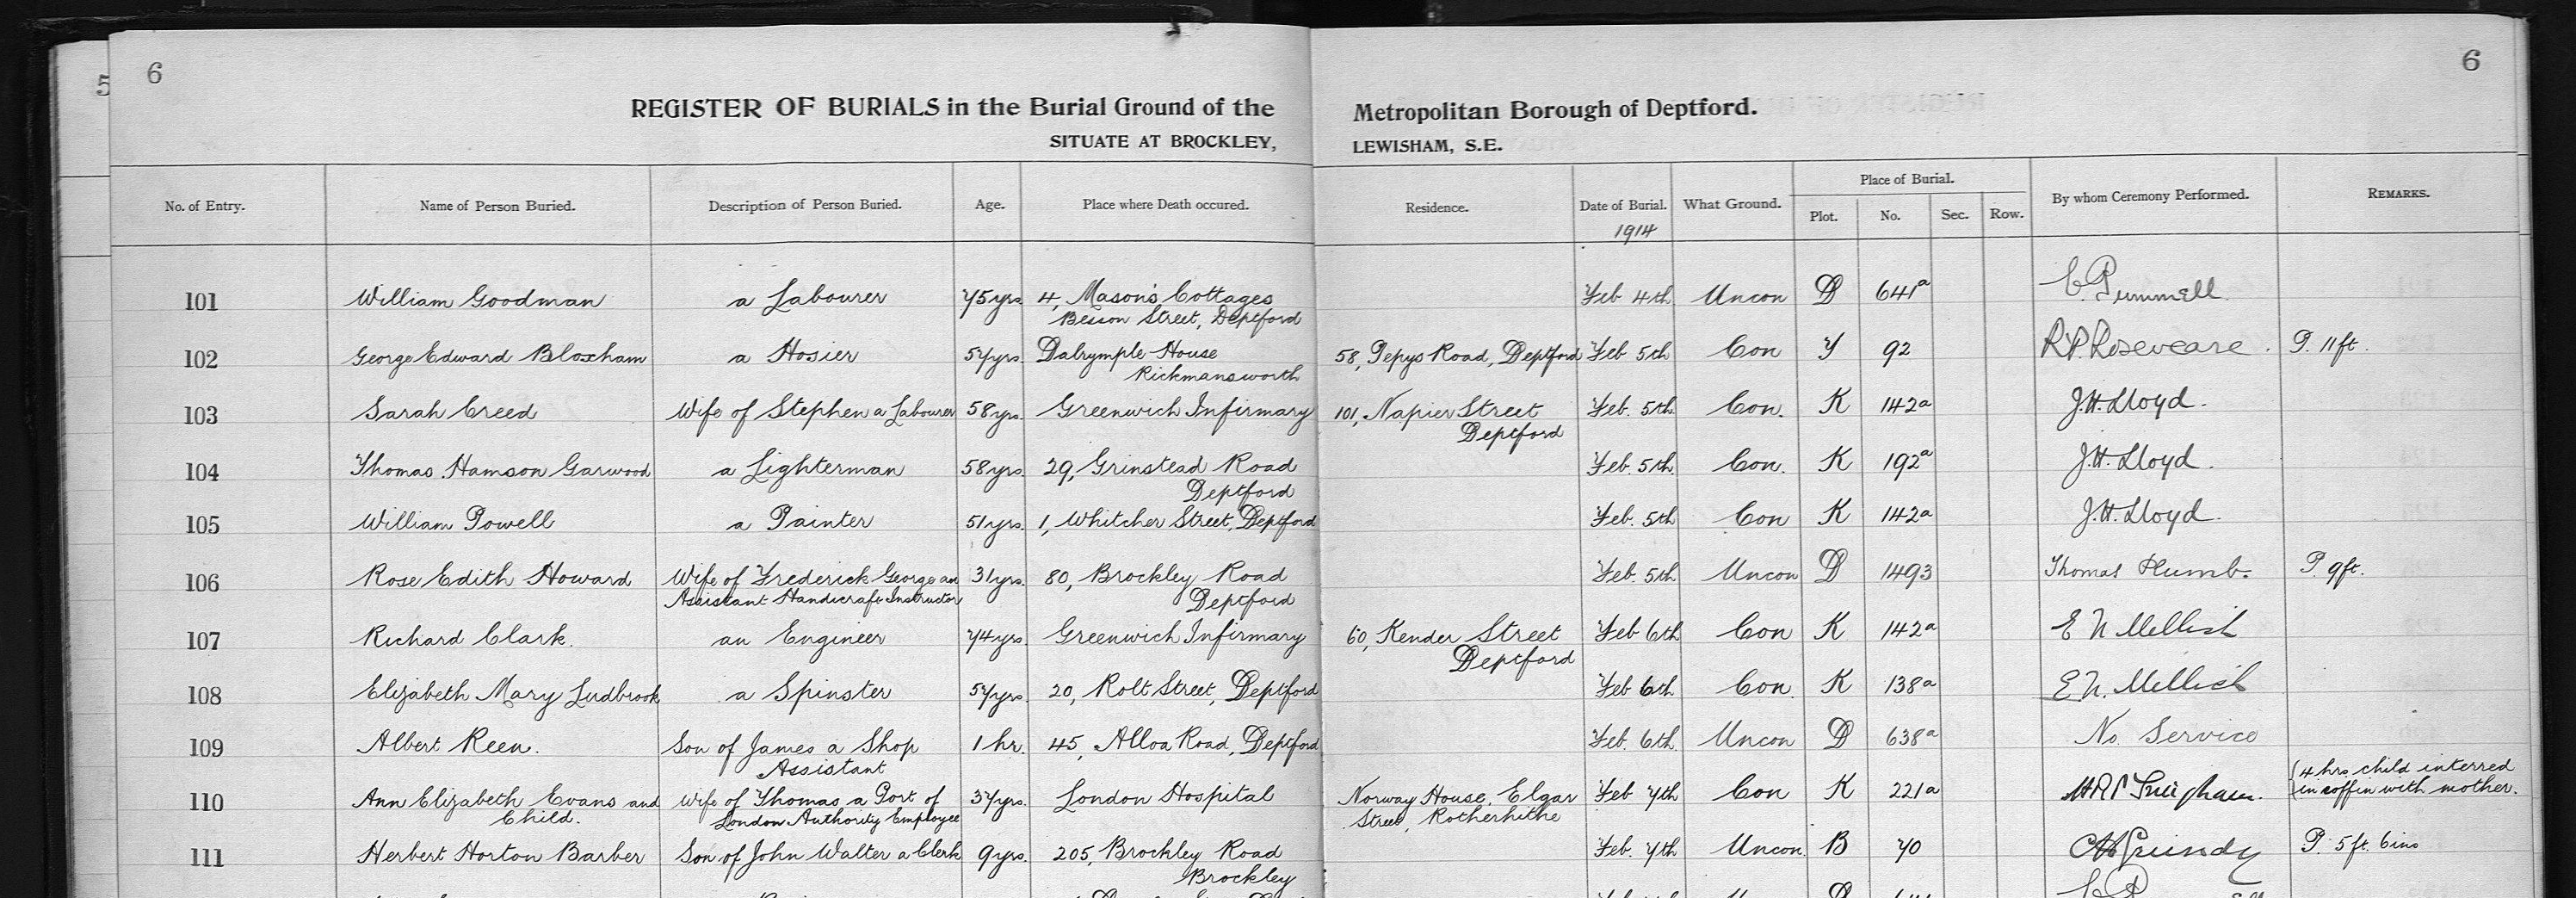 5
6
6
REGISTER OF BURIALS in the Burial Ground of the Metropolitan Borough of Deptford.
SITUATE AT BROCKLEY, LEWISHAM, S.E.
No. of Entry. Name of Person Buried. Description of Person Buried. Age. Place where Death occured. Residence. Date of Burial. What Ground. Place of Burial. By whom Ceremony Performed. REMARKS.
Plot. No. Sec. Row.
1914
101 William Goodman a Labourer 75 yrs 4, Mason's Cottages Feb 4th Uncon D 641a
Besson Street, Deptford
102 George Edward Bloxham a Hosier 57 yrs. Dalrymple House 58, Pepys Road, Deptford Feb 5th Con Y 92 R.P. Roseveare. P. 11 ft.
Rickmansworth
103 Sarah Creed Wife of Stephen a Labourer 58 yrs. Greenwich Infirmary 101, Napier Street Feb. 5th Con. K 142a J.H. Lloyd.
Deptford
104 Thomas Hamson Garwood a Lighterman 58 yrs. 29, Grinstead Road Feb. 5th. Con. K 192a J.H. Lloyd.
Deptford
105 William Powell a Painter 51 yrs. 1, Whitcher Street, Deptford Feb. 5th Con K 142a J.H. Lloyd.
106 Rose Edith Howard Wife of Frederick George an 31 yrs. 80, Brockley Road Feb. 5th Uncon D 1493 Thomas Plumb. P. 9 ft.
Assistant Handicraft Instructor Deptford
107 Richard Clark. an Engineer 74 yrs. Greenwich Infirmary 60, Kender Street Feb 6th Con K 142a E N Mellish
Deptford
108 Elizabeth Mary Ludbrook a Spinster 57 yrs. 20, Rolt Street, Deptford Feb 6th Con. K 138a E.N. Mellish
109 Albert Keen. Son of James a Shop 1 hr. 45, Alloa Road, Deptford Feb. 6th. Uncon D 638a No Service
Assistant
110 Ann Elizabeth Evans and Wife of Thomas a Port of 37 yrs. London Hospital Norway House, Elgar Feb 7th Con K 221a {4 hrs child interred
Child. London Authority Employee Street, Rotherhithe {in coffin with mother.
111 Herbert Horton Barber Son of John Walter a Clerk 9 yrs. 205, Brockley Road Feb. 7th Uncon. B 70 Grundy P. 5 ft. 6 ins
Brockley